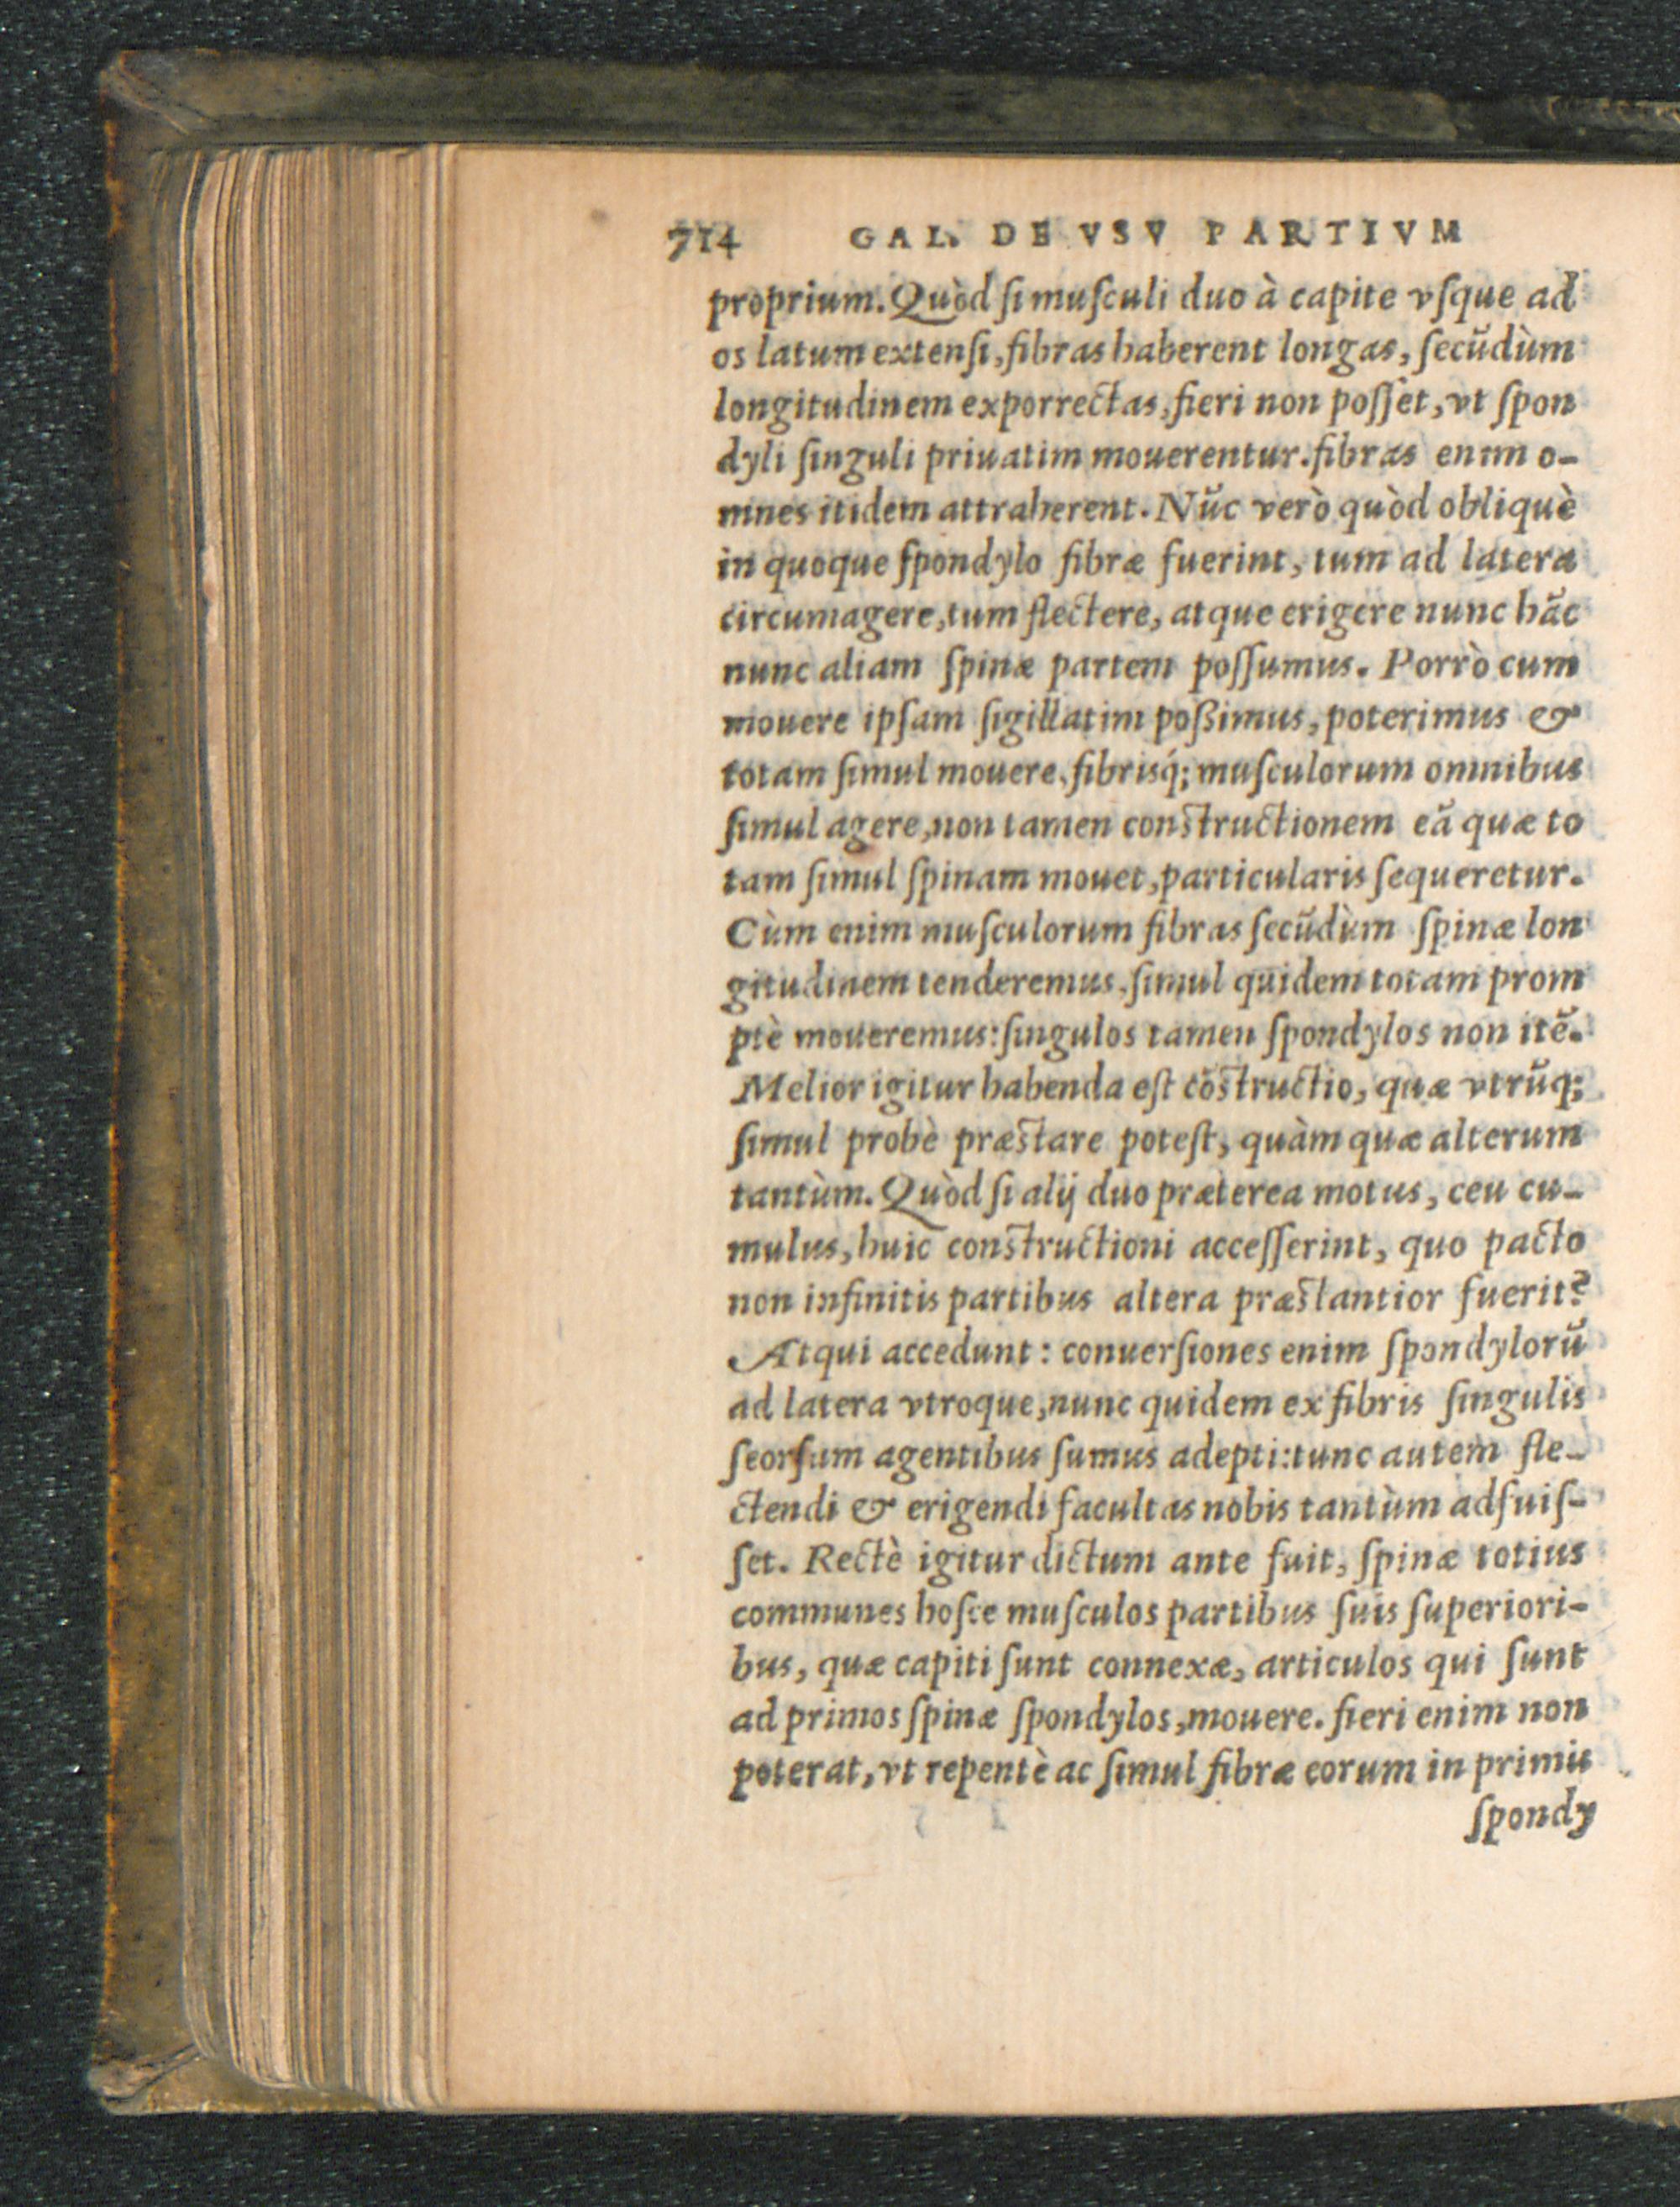 714 GAL. DE VSV PARTIVM
proprium. Quòd ſi muſculi duo à capite vſque ad
os latum extenſi, fibras haberent longas, ſecūdùm
longitudinem exporrectas, fieri non poſſet, vt ſpon
dyli ſinguli priuatim mouerentur. fibras enim o-
mnes itidem attraherent. Nūc verò quòd obliquè
in quoque ſpondylo fibræ fuerint, tum ad latera
circumagere, tum flectere, atque erigere nunc hāc
nunc aliam ſpinæ partem poſſumus. Porrò cum
mouere ipſam ſigillatim poßimus, poterimus &
totam ſimul mouere, fibrisq́; muſculorum omnibus
ſimul agere, non tamen conſtructionem eā quæ to
tam ſimul ſpinam mouet, particularis ſequeretur.
Cùm enim muſculorum fibras ſecūdùm ſpinæ lon
gitudinem tenderemus, ſimul quidem totam prom
ptè moueremus: ſingulos tamen ſpondylos non itē.
Melior igitur habenda eſt cōſtructio, quæ vtrūq;
ſimul probè præſtare poteſt, quàm quæ alterum
tantùm. Quòd ſi alij duo præterea motus, ceu cu-
mulus, huic conſtructioni acceſſerint, quo pacto
non infinitis partibus altera præſtantior fuerit?
Atqui accedunt: conuerſiones enim ſpondylorū
ad latera vtroque, nunc quidem ex fibris ſingulis
ſeorſum agentibus ſumus adepti: tunc autem fle-
ctendi & erigendi facultas nobis tantùm adfuiſ-
ſet. Rectè igitur dictum ante fuit, ſpinæ totius
communes hoſce muſculos partibus ſuis ſuperiori-
bus, quæ capiti ſunt connexæ, articulos qui ſunt
ad primos ſpinæ ſpondylos, mouere. fieri enim non
poterat, vt repentè ac ſimul fibræ eorum in primis
ſpondy